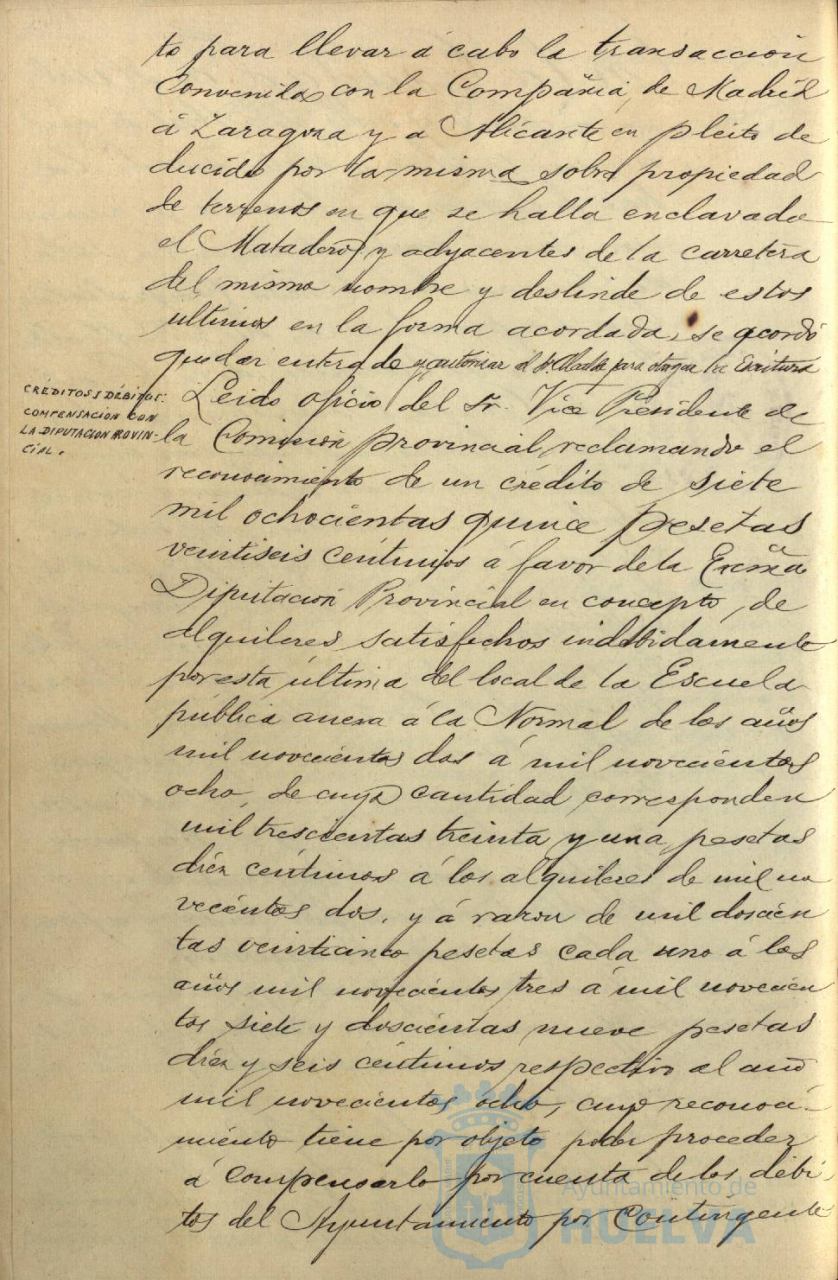 to para llevar á cabo la transacción
convenida con la Compañia de Madrid
á Zaragoza y a Alicante en pleito de
ducido por la misma sobre propiedad
de terrenos en que se halla enclavado
el Matadero y adyacentes de la carretera
del mismo nombre y deslinde de estos
ultimos en la forma acordada, se acordó
quedar enterado y autorizar al Sr Alcalde para otorgar la Escritura
CRÉDITOS Y DÉBITOS:
COMPENSACION CON
LA DIPUTACION PROVIN-
CIAL.
Leido oficio del Sr. Vice Presidente de
la Comision provincial reclamando el
reconocimiento de un crédito de siete
mil ochocientas quince pesetas
veintiseis céntimos á favor de la Excma
Diputación Provincial en concepto de
alquileres satisfechos indebidamente
por esta última del local de la Escuela
pública anexa á la Normal de los años
mil novecientos dos á mil novecientos
ocho, de cuya cantidad corresponden
mil trescientas treinta y una pesetas
diez céntimos á los alquileres de mil no
vecientos dos, y á razon de mil doscien
tas veinticinco pesetas cada uno á los
años mil novecientos tres á mil novecien
tos siete y doscientas nueve pesetas
diez y seis céntimos respectivo al año
mil novecientos ocho, cuyo reconoci-
miento tiene por objeto poder proceder
á compensarlo por cuenta de los débi-
tos del Ayuntamiento por Contingente
Ayuntamiento de
HUELVA